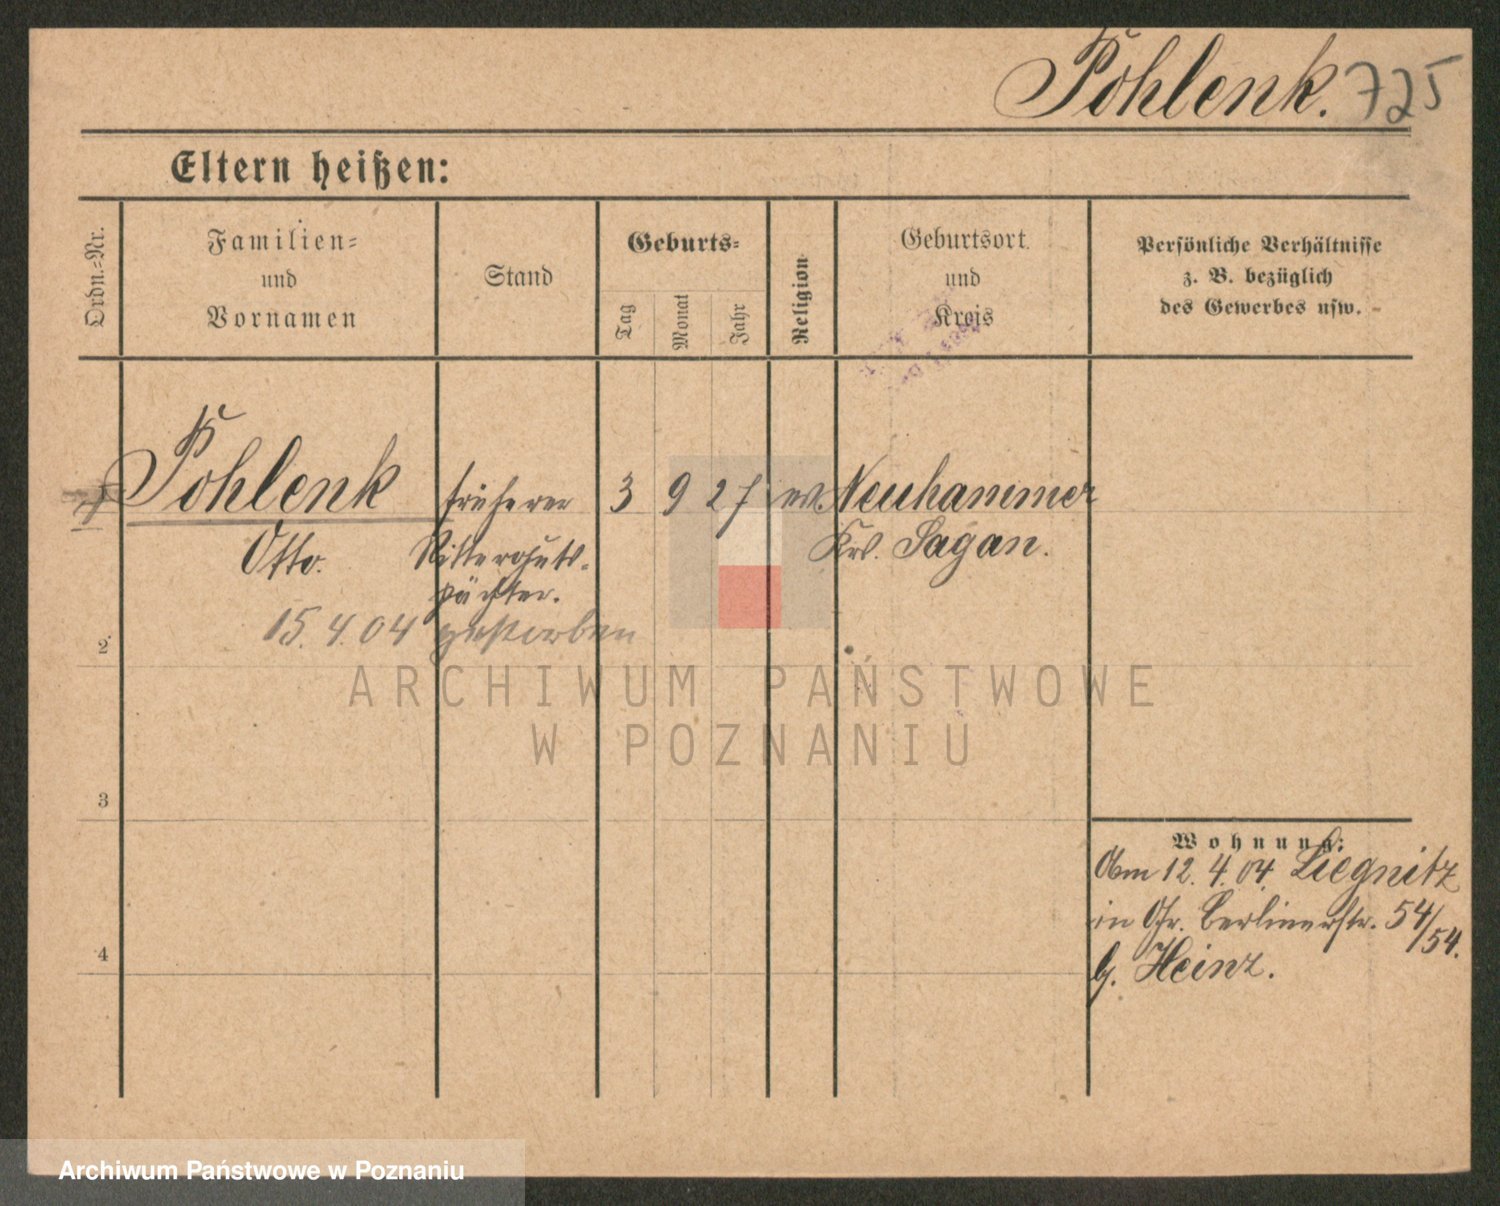 Pohlenk. 725
Eltern heißen:
Ordn.-Nr.
Familien-
und
Vornamen
Stand
Geburts-
Tag
Monat
Jahr
Religion
Geburtsort
und
Kreis
Persönliche Verhältnisse
z. B. bezüglich
des Gewerbes usw.
Pohlenk früherer 3 9 27 ev. Neuhammer
Otto. Ritterguts- Krs. Sagan.
pächter.
15.4.04 gestorben
2
3
4
Wohnung:
Am 12.4.04. Liegnitz
in Gr. Berlinerstr. 54/54.
b. Heinz.
ARCHIWUM PAŃSTWOWE
W POZNANIU
Archiwum Państwowe w Poznaniu